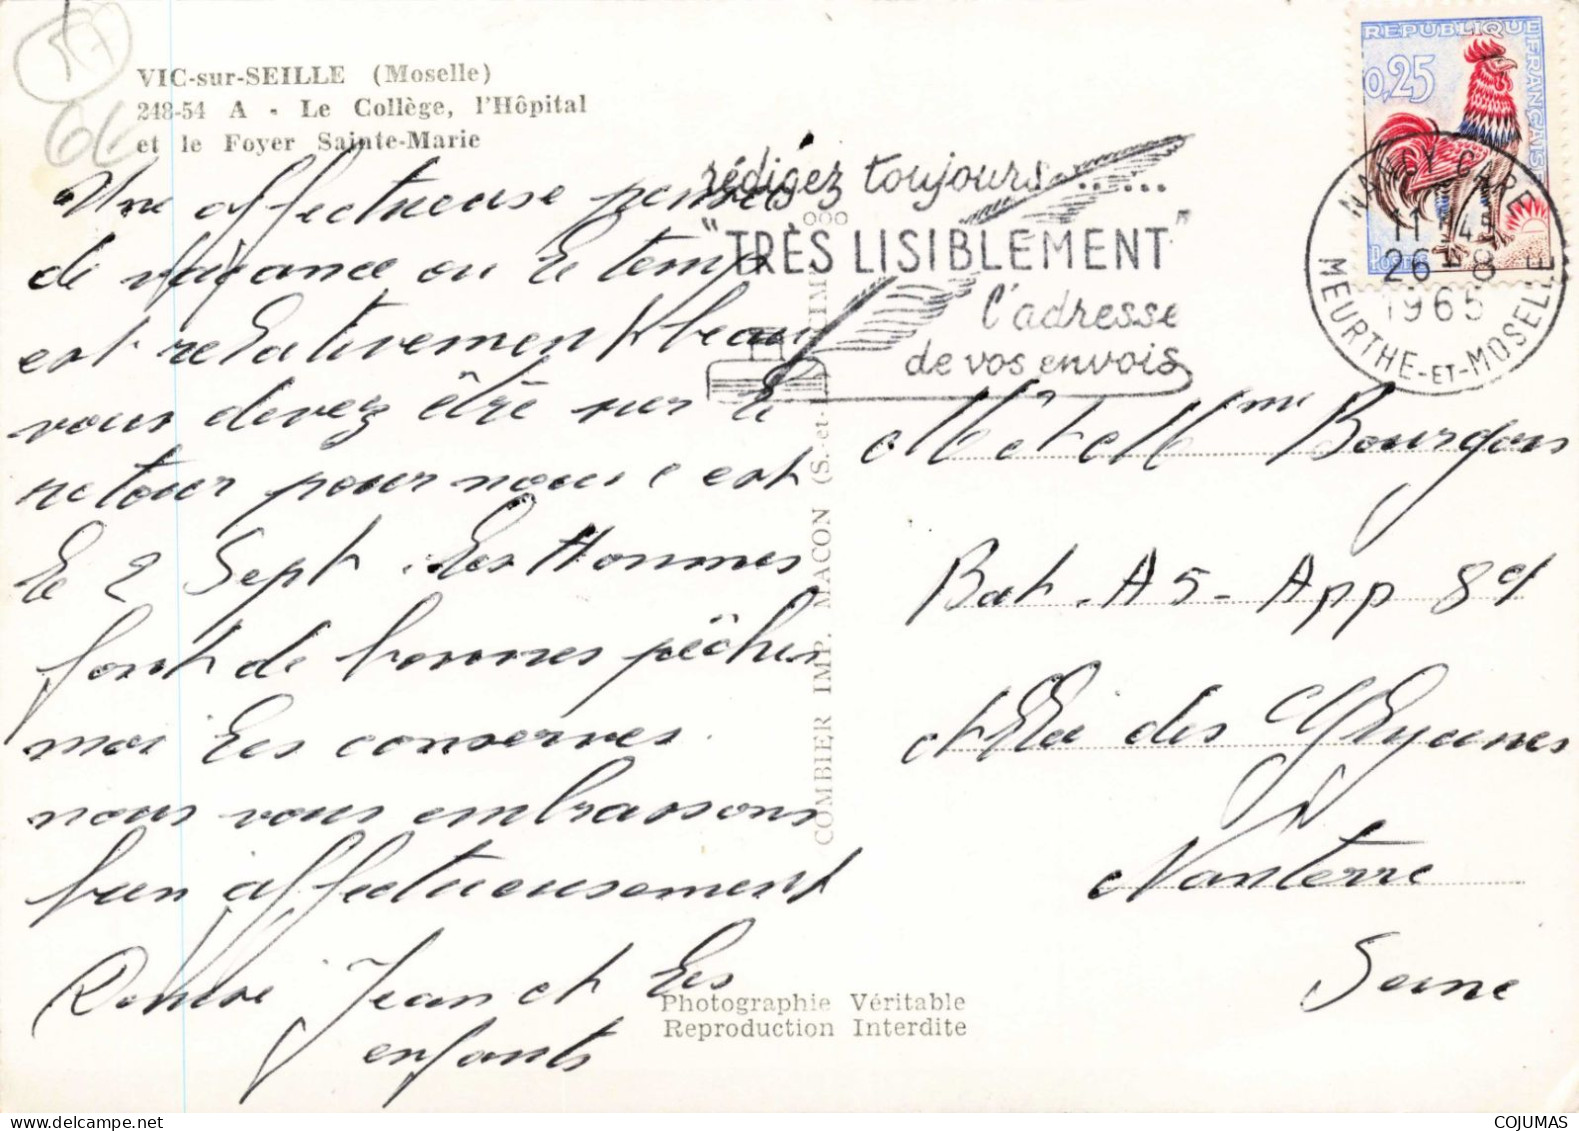 VIC-sur-SEILLE (Moselle)
248-54 A - Le Collège, l'Hôpital
et le Foyer Sainte-Marie
Une affectueuse pensées
de vacance ou le temp
est relativement beau
vous devez être sur le
retour pour nous c est
le 2 Sept. Les Hommes
font de bonnes pêches
moi les conserves.
nous vous embrassons
bien affectueusement
Jean et les
enfants
COMBIER IMP. MACON (S.-et-
rédigez toujours......
"TRÈS LISIBLEMENT"
l'adresse
de vos envois
REPUBLIQUE FRANÇAISE
0,25
Postes
NANCY GARE
11 H 45
26 - 8
1965
MEURTHE-ET-MOSELLE
Mr et Mme Bourgois
Bat. A5 - App 89
des
Nanterre
Seine
Photographie Véritable
Reproduction Interdite
COJUMAS